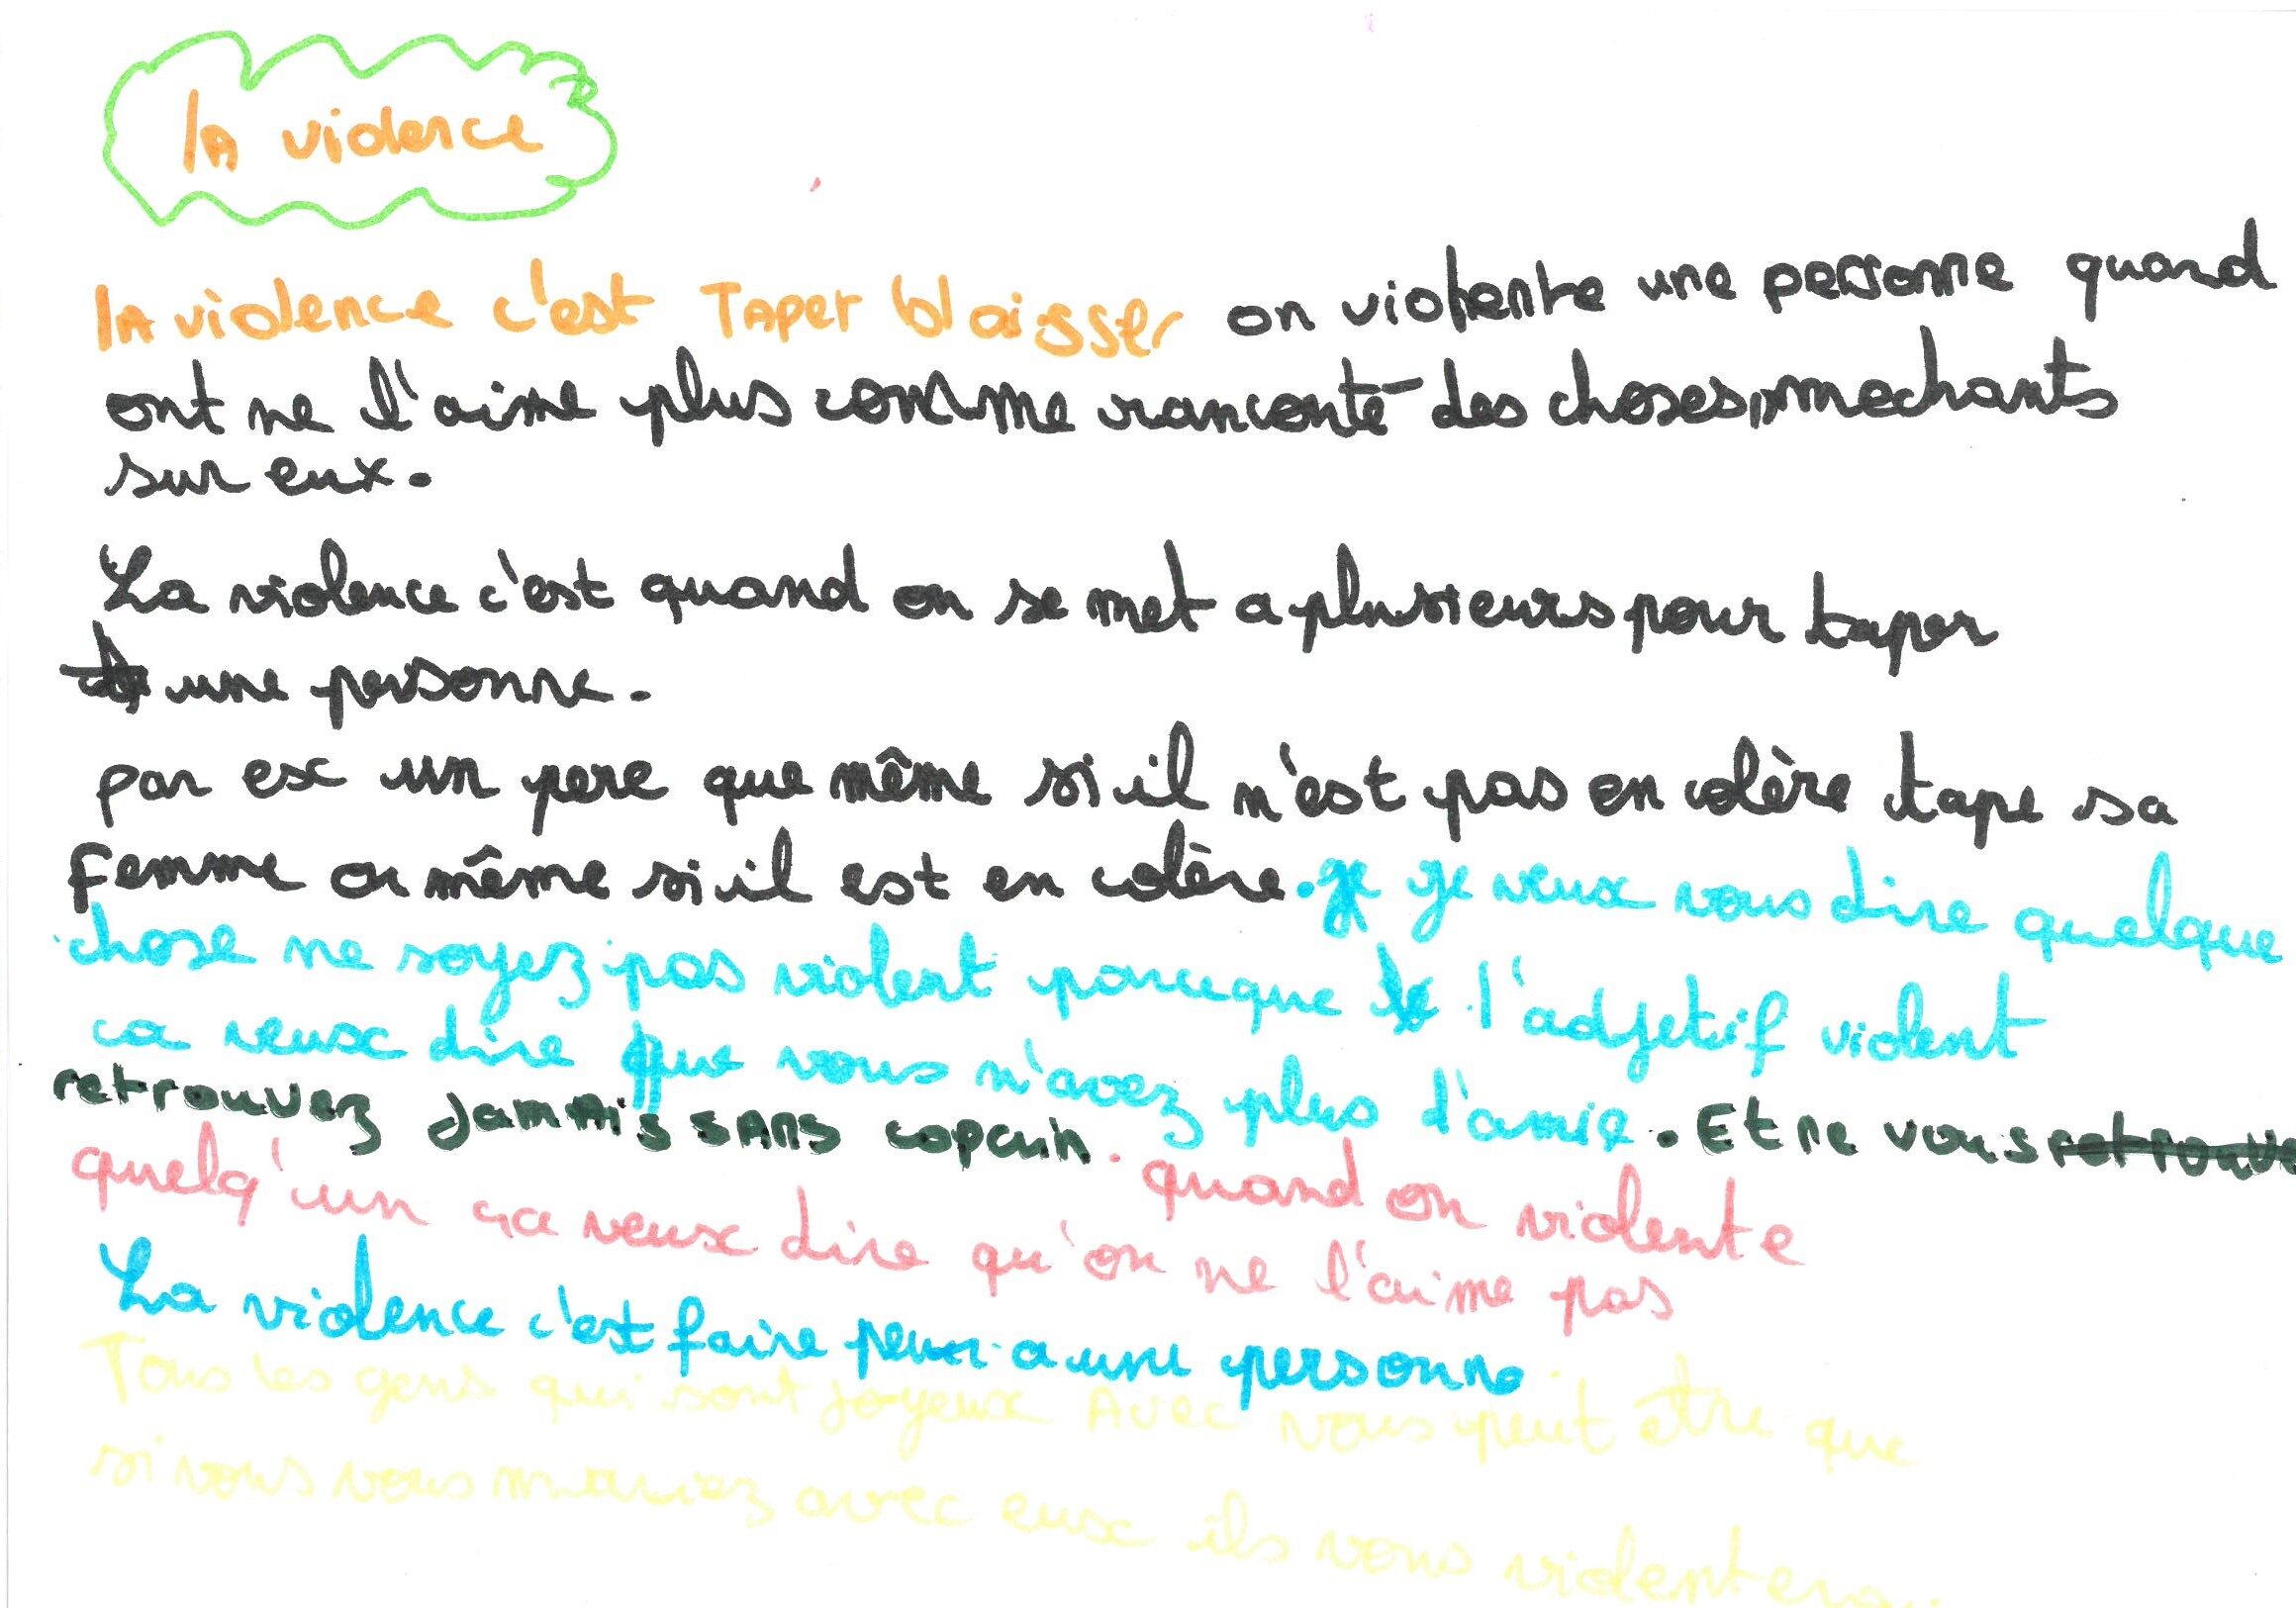 la violence
la violence c'est Taper blaisser on violente une personne quand
ont ne l'aime plus comme ranconté des choses mechants
sur eux.
La violence c'est quand on se met a plusieurs pour taper
une personne.
par ex un pere que même si il n'est pas en colère tape sa
femme ou même si il est en colère. je je veux vous dire quelque
chose ne soyez pas violent parceque l'adjetif violent
ca veux dire que vous n'avez plus d'amie. Et ne vous retrouve
retrouvez jammais sans copain. quand on violente
quelq'un ça veux dire qu'on ne l'aime pas
La violence c'est faire peur a une personne
Tous les gens qui sont joyeux Avec vous peut être que
si vous vous mariez avec eux ils vous